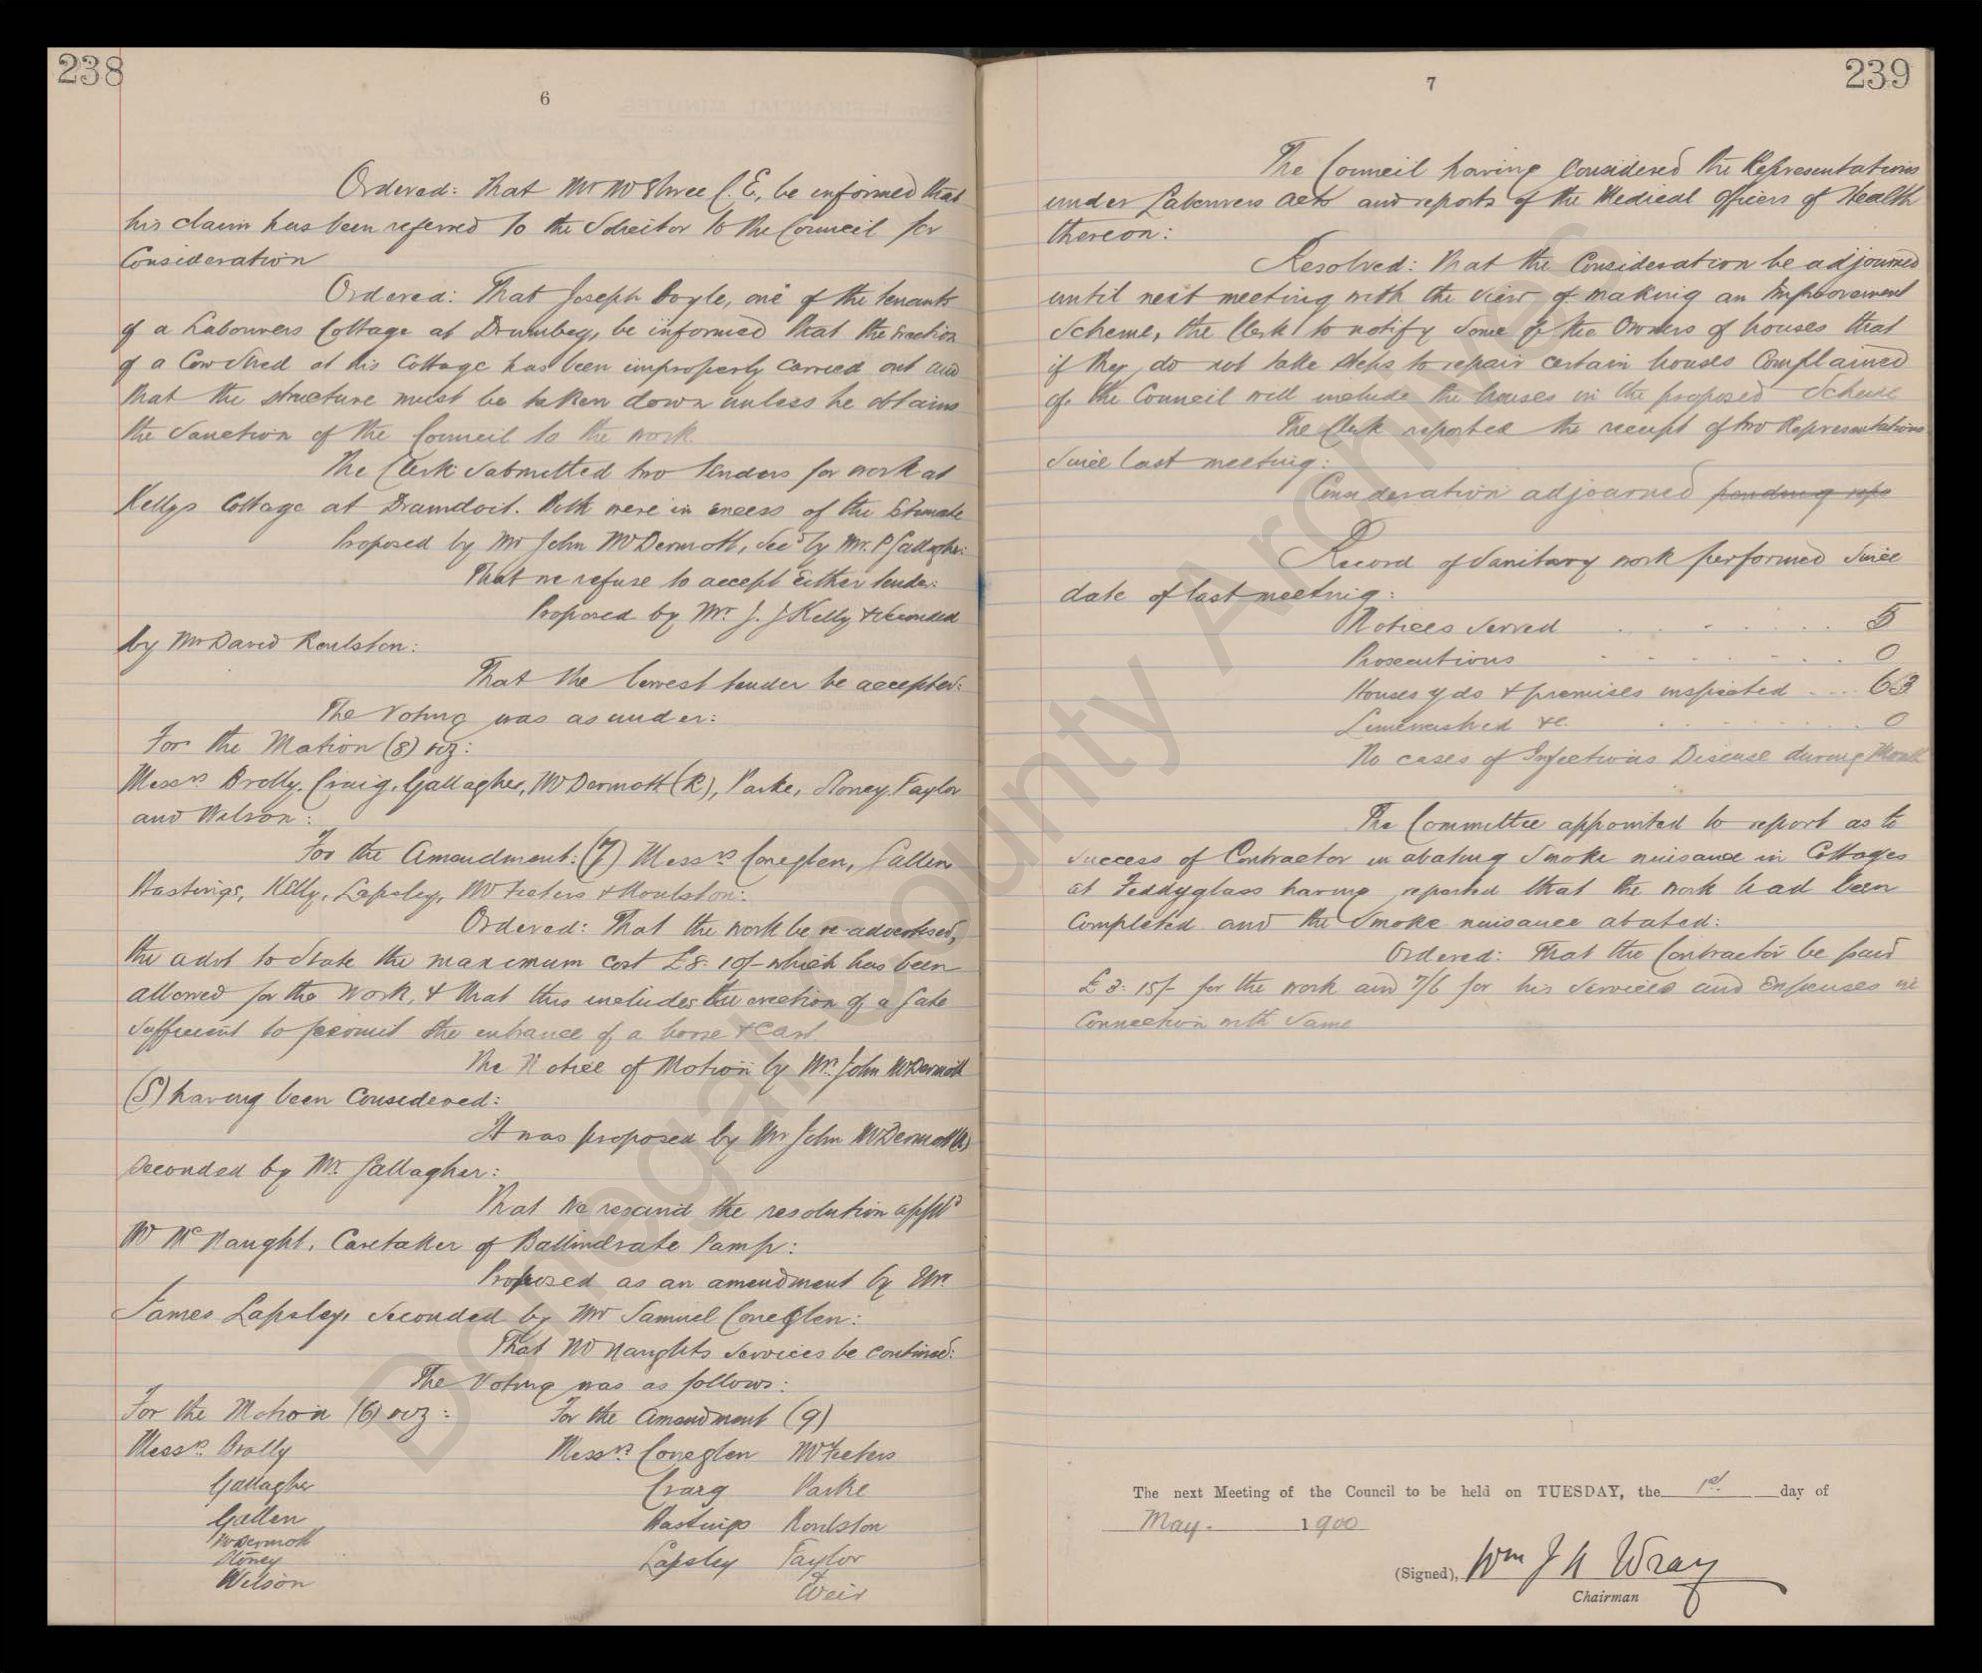 238
6
Ordered: That Mr McShree C.E, be informed that
his claim has been referred to the Solicitor to the Council for
Consideration
Ordered: That Joseph Doyle, one of the tenants
of a Labourers Cottage at Drumbeg, be informed that the Erection
of a Cow Shed at his Cottage has been improperly carried out and
that the structure must be taken down unless he obtains
the Sanction of the Council to the work.
The Clerk Submitted two Tenders for work at
Kellys Cottage at Dramdoit. Both were in excess of the Estimate
Proposed by Mr John McDermott, Secd by Mr. P Gallagher:
That we refuse to accept Either tender:
Proposed by Mr. J. J Kelly & seconded
by Mr David Roulston:
That the lowest tender be accepted:
The Voting was as under:
For the Motion (8) viz:
Messrs Brolly, Craig, Gallagher, McDermott (R), Parke, Storey, Taylor
and Wilson:
For the Amendment: (7) Messrs Coneglen, Gallen
Hastings, Kelly, Lapsley, McFeeters & Roulston:
Ordered: That the work be re-advertised,
the advt to State the maximum cost £8: 10/- which has been
allowed for the work, & that this includes the erection of a Gate
Sufficient to permit the entrance of a horse & Cart
The Notice of Motion by Mr. John McDermott
(S) having been Considered:
It was proposed by Mr John McDermott (S)
Seconded by Mr. Gallagher:
That we rescind the resolution apptg
Mr McNaught, Caretaker of Ballindrate Pump:
Proposed as an amendment by Mr.
James Lapsley, Seconded by Mr Samuel Coneglen:
That McNaughts Services be continued:
The Voting was as follows:
For the Motion (6) viz: For the Amendment (9)
Messrs. Brolly Messrs Coneglen McFeeters
Gallagher Craig Parke
Gallen Hastings Roulston
McDermott
Storey Lapsley Taylor
Wilson & Weir
239
7
The Council having Considered the Representations
under Labourers Acts and reports of the Medical Officers of Health
thereon:
Resolved: That the Consideration be adjourned
until next meeting with the view of making an Improvement
Scheme, the Clerk to notify Some of the Owners of houses that
if they do not take steps to repair certain houses Complained
of, the Council will include the houses in the proposed Scheme
The Clerk reported the receipt of two Representations
Since last meeting:
Consideration adjourned pending repo
Record of Sanitary work performed Since
date of last meeting:
Notices Served 5
Prosecutions 0
Houses yds & premises inspected 63
Limewashed &c. 0
No cases of Infectious Disease during Month
The Committee appointed to report as to
Success of Contractor in abating Smoke nuisance in Cottages
at Feddyglass having reported that the work had been
Completed and the Smoke nuisance abated:
Ordered: That the Contractor be paid
£3: 15/- for the work and 7/6 for his Services and Expenses in
Connection with Same
The next Meeting of the Council to be held on TUESDAY, the 1st day of
May. 1900
(Signed), Wm J A Wray
Chairman
Donegal County Archives